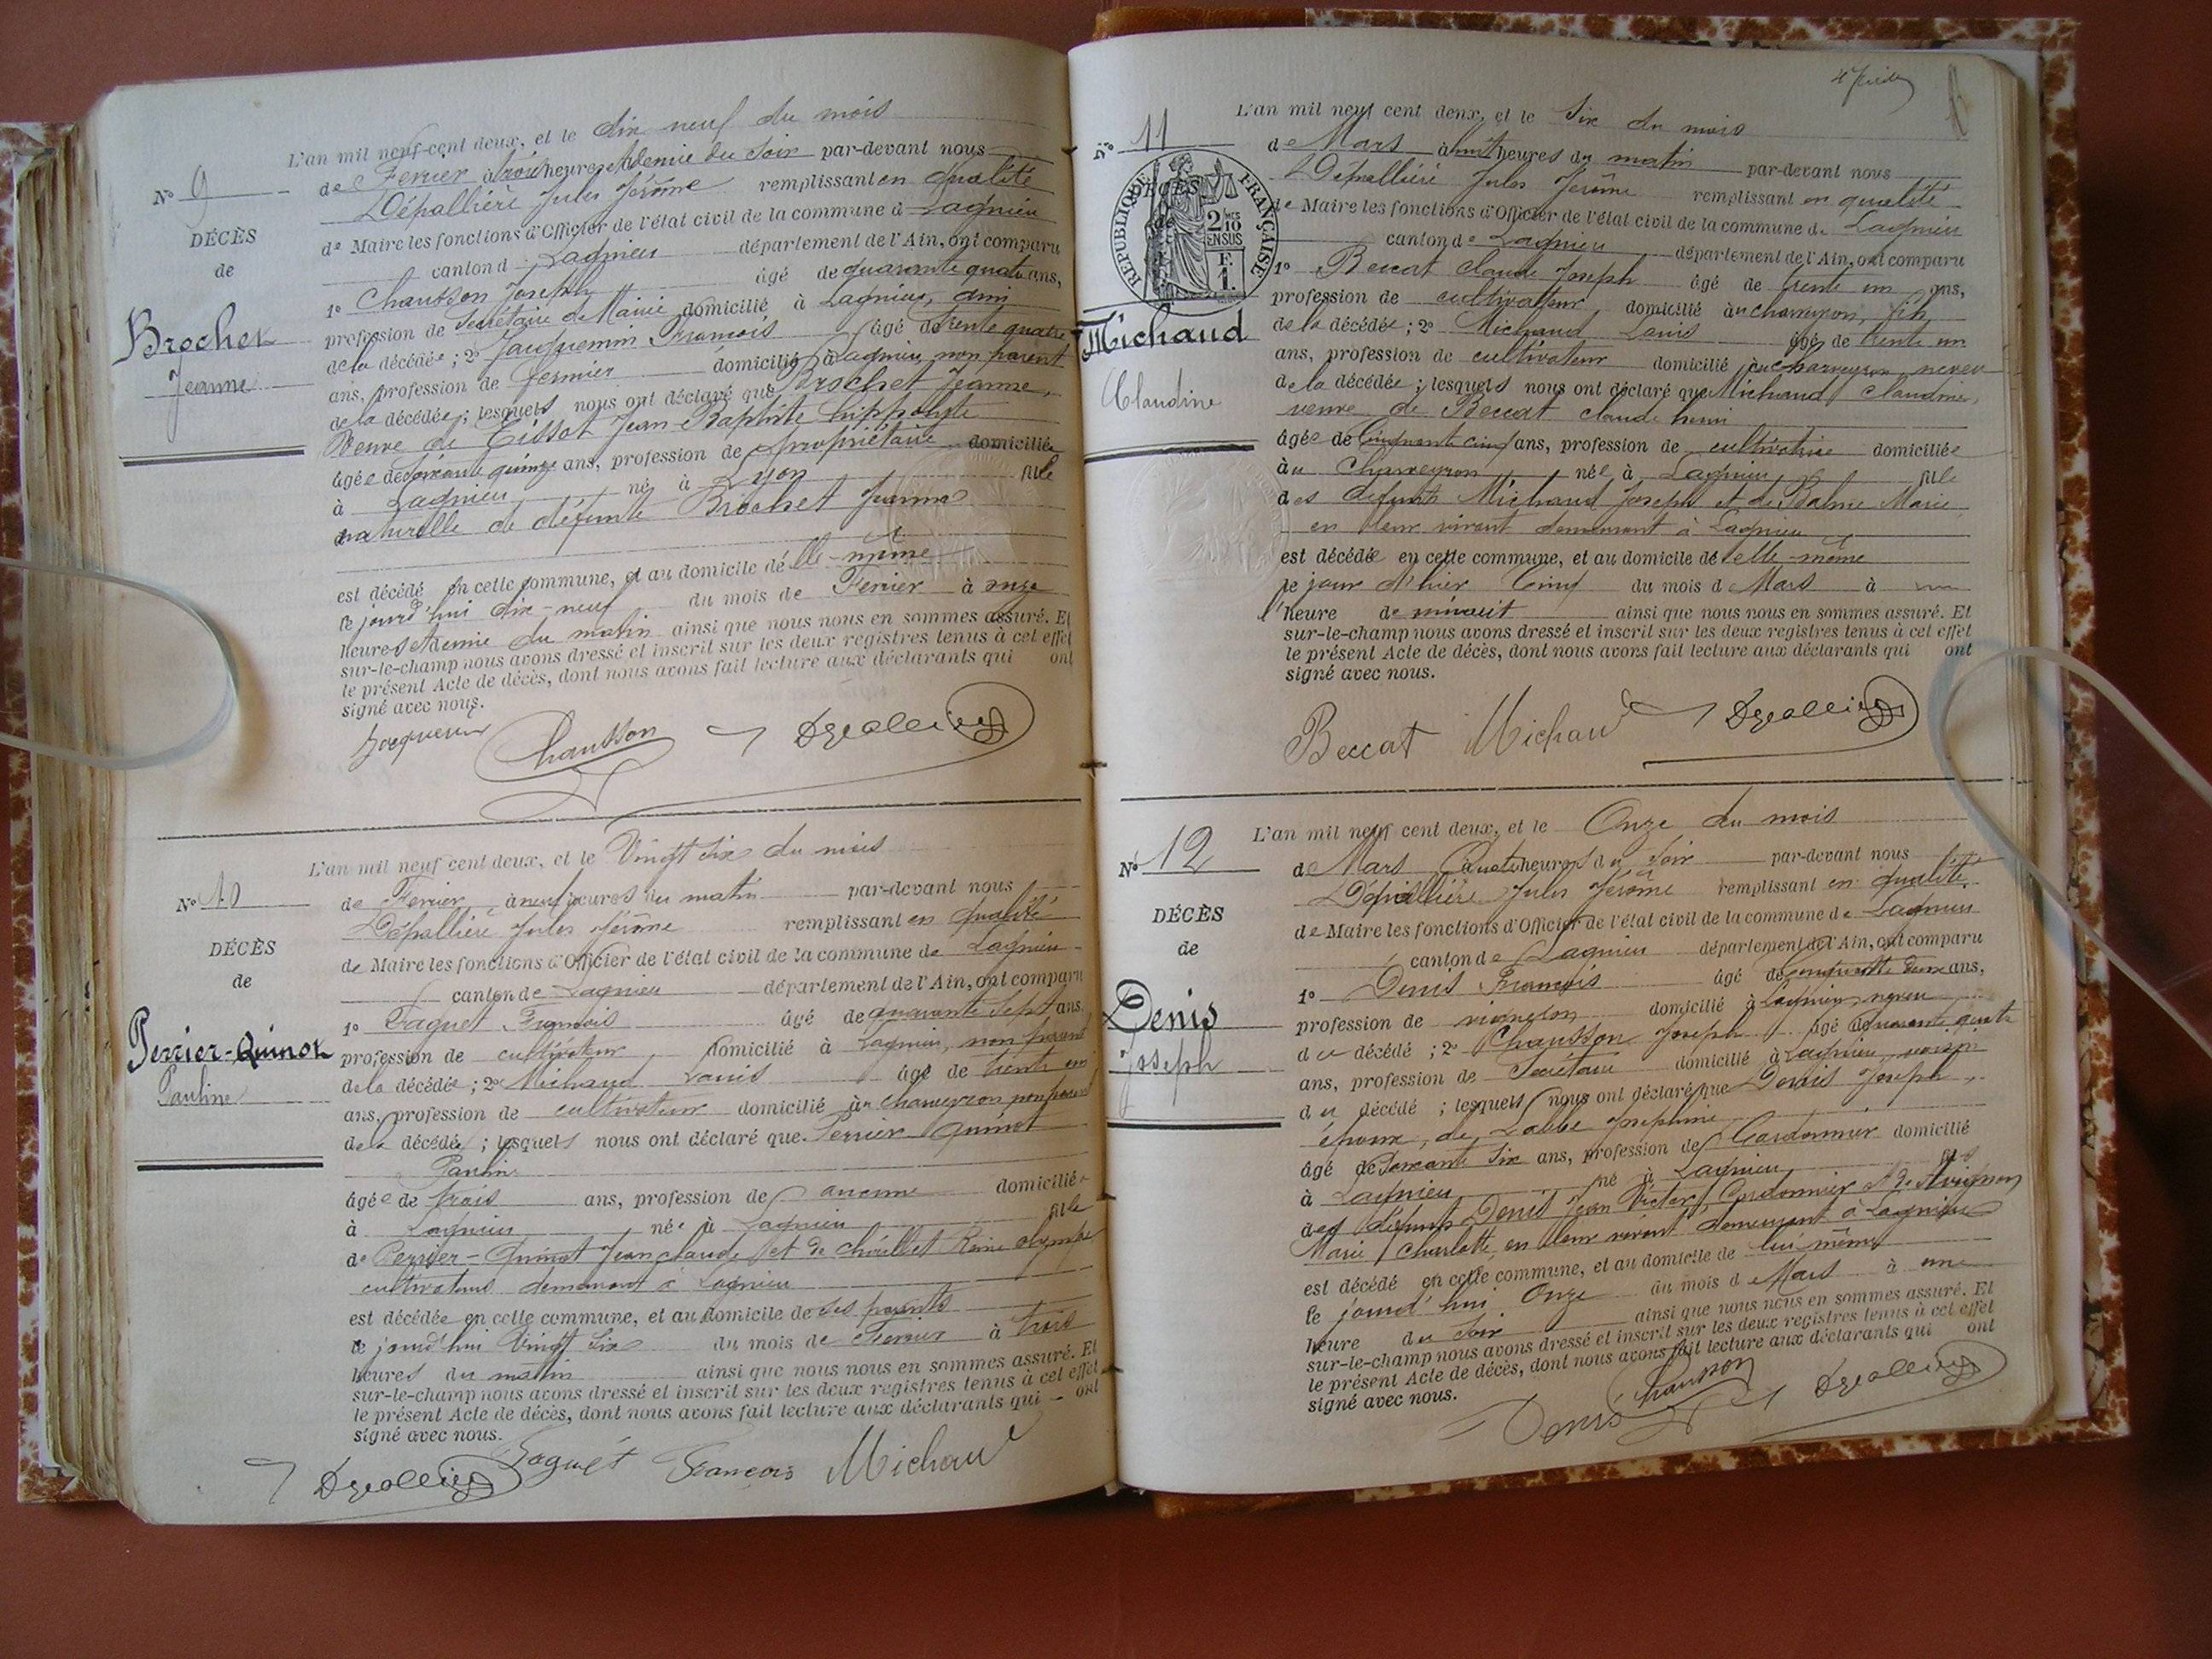 L'an mil neuf cent deux, et le dix neuf du mois
N° 9
de Fevrier à trois heures et demie du soir par-devant nous
Dépallière Jules Jérôme remplissant en qualité
de Maire les fonctions d'Officier de l'état civil de la commune d Lagnieu
canton d Lagnieu département de l'Ain, ont comparu
DÉCÈS
de
Brochet
Jeanne
1° Chausson Joseph âgé de quarante quatre ans,
profession de Secrétaire de Mairie domicilié à Lagnieu, ami
de la décédée ; 2° Jacquemin François âgé de trente quatre
ans, profession de fermier domicilié à Lagnieu, non parent
de la décédée ; lesquels nous ont déclaré que Brochet Jeanne,
Veuve de Tissot Jean-Baptiste hippolyte
âgée de soixante quinze ans, profession de propriétaire domiciliée
à Lagnieu né à Lyon fille
naturelle de défunte Brochet Jeanne
est décédé en cette commune, et au domicile d'elle-même
le jourd'hui dix-neuf du mois de Fevrier à onze
heures et demie du matin ainsi que nous nous en sommes assuré. Et
sur-le-champ nous avons dressé et inscrit sur les deux registres tenus à cet effet
le présent Acte de décès, dont nous avons fait lecture aux déclarants qui ont
signé avec nous.
Jacquemin Chausson Dépallière
L'an mil neuf cent deux, et le Vingt six du mois
N° 10
de Fevrier à neuf heures du matin par-devant nous
Dépallière Jules Jérôme remplissant en qualité
de Maire les fonctions d'Officier de l'état civil de la commune de Lagnieu
canton de Lagnieu département de l'Ain, ont comparu
DÉCÈS
de
Perrier-Quinot
Pauline
1° Faguet François âgé de quarante sept ans,
profession de cultivateur domicilié à Lagnieu, non parent
de la décédée ; 2° Michaud Louis âgé de trente un
ans, profession de cultivateur domicilié à Charveyron non parent
de la décédée ; lesquels nous ont déclaré que Perrier Quinot
Pauline
âgée de trois ans, profession de aucune domiciliée
à Lagnieu née à Lagnieu fille
de Perrier-Quinot Jean claude et de Reine olympe
cultivateurs demeurant à Lagnieu
est décédée en cette commune, et au domicile de ses parents
le jourd'hui Vingt six du mois de Fevrier à trois
heures du matin ainsi que nous nous en sommes assuré. Et
sur-le-champ nous avons dressé et inscrit sur les deux registres tenus à cet effet
le présent Acte de décès, dont nous avons fait lecture aux déclarants qui ont
signé avec nous.
Dépallière Faguet François Michaud
L'an mil neuf cent deux, et le Six du mois
N° 11
de Mars à huit heures du matin par-devant nous
Dépallière Jules Jérôme remplissant en qualité
de Maire les fonctions d'Officier de l'état civil de la commune de Lagnieu
canton de Lagnieu département de l'Ain, ont comparu
RÉPUBLIQUE FRANÇAISE
2/10 EN SUS
1 F.
DÉCÈS
de
Michaud
Claudine
1° Beccat Claude Joseph âgé de trente un ans,
profession de cultivateur domicilié à Charveyron, fils
de la décédée ; 2° Michaud Louis âgé de trente un
ans, profession de cultivateur domicilié à Charveyron, neveu
de la décédée ; lesquels nous ont déclaré que Michaud Claudine,
veuve de Beccat claude henri
âgée de Cinquante cinq ans, profession de cultivatrice domiciliée
au Charveyron née à Lagnieu fille
des defunts Michaud Joseph et de Balme Marie
en leur vivant demeurant à Lagnieu
est décédée en cette commune, et au domicile de elle-même
le jour d'hier Cinq du mois de Mars à
l'heure de minuit ainsi que nous nous en sommes assuré. Et
sur-le-champ nous avons dressé et inscrit sur les deux registres tenus à cet effet
le présent Acte de décès, dont nous avons fait lecture aux déclarants qui ont
signé avec nous.
Beccat Michaud Dépallière
L'an mil neuf cent deux, et le Onze du mois
N° 12
de Mars à Quatre heures du soir par-devant nous
Dépallière Jules Jérôme remplissant en qualité
de Maire les fonctions d'Officier de l'état civil de la commune de Lagnieu
canton de Lagnieu département de l'Ain, ont comparu
DÉCÈS
de
Denis
Joseph
1° Denis François âgé de cinquante deux ans,
profession de vigneron domicilié à Lagnieu, neveu
du décédé ; 2° Chausson Joseph âgé de quarante quatre
ans, profession de Secrétaire domicilié à Lagnieu, voisin
du décédé ; lesquels nous ont déclaré que Denis Joseph,
époux de Labbe Josephine
âgé de Soixante Six ans, profession de Cordonnier domicilié
à Lagnieu né à Lagnieu fils
des défunts Denis Jean Victor, Cordonnier et de Avignon
Marie Charlotte, en leur vivant demeurant à Lagnieu
est décédé en cette commune, et au domicile de lui même
le jourd'hui Onze du mois d Mars à une
heure du Soir ainsi que nous nous en sommes assuré. Et
sur-le-champ nous avons dressé et inscrit sur les deux registres tenus à cet effet
le présent Acte de décès, dont nous avons fait lecture aux déclarants qui ont
signé avec nous.
Denis Chausson Dépallière